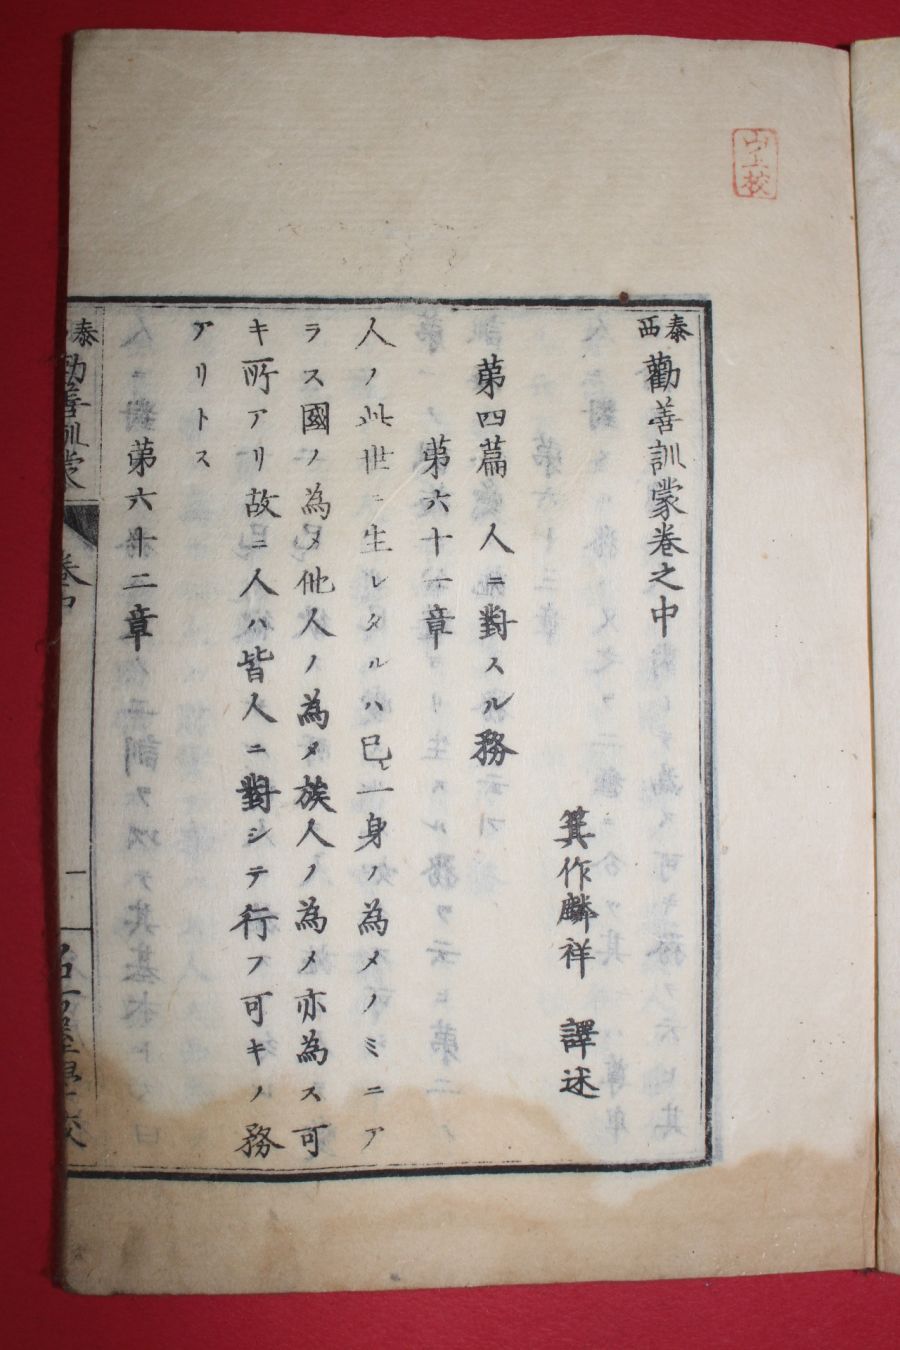 山上校
泰西 勸善訓蒙卷之中
箕作麟祥 譯述
第四篇 人ニ對スル務
第六十一章
人ノ此世ニ生レタルハ已レ一身ノ為メノミニア
ラス國ノ為メ他人ノ為メ族人ノ為メ亦為ス可
キ所アリ故ニ人ハ皆人ニ對シテ行フ可キノ務
アリトス
第六十二章
泰 勸善訓蒙 卷中 一 名古屋學校